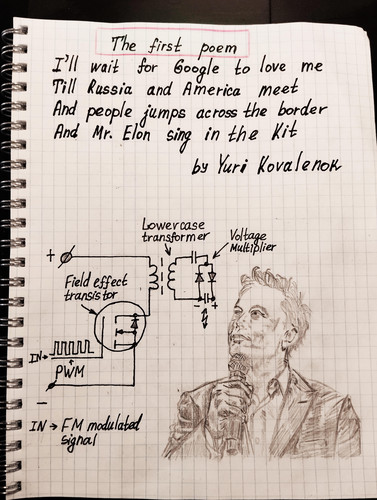 The first poem
I'll wait for Google to love me
Till Russia and America meet
And people jumps across the border
And Mr. Elon sing in the Kit
by Yuri Kovalenok
Lowercase
transformer
Voltage
Multiplier
+
Field effect
transistor
- +
IN→
PWM
-
IN → FM modulated
signal